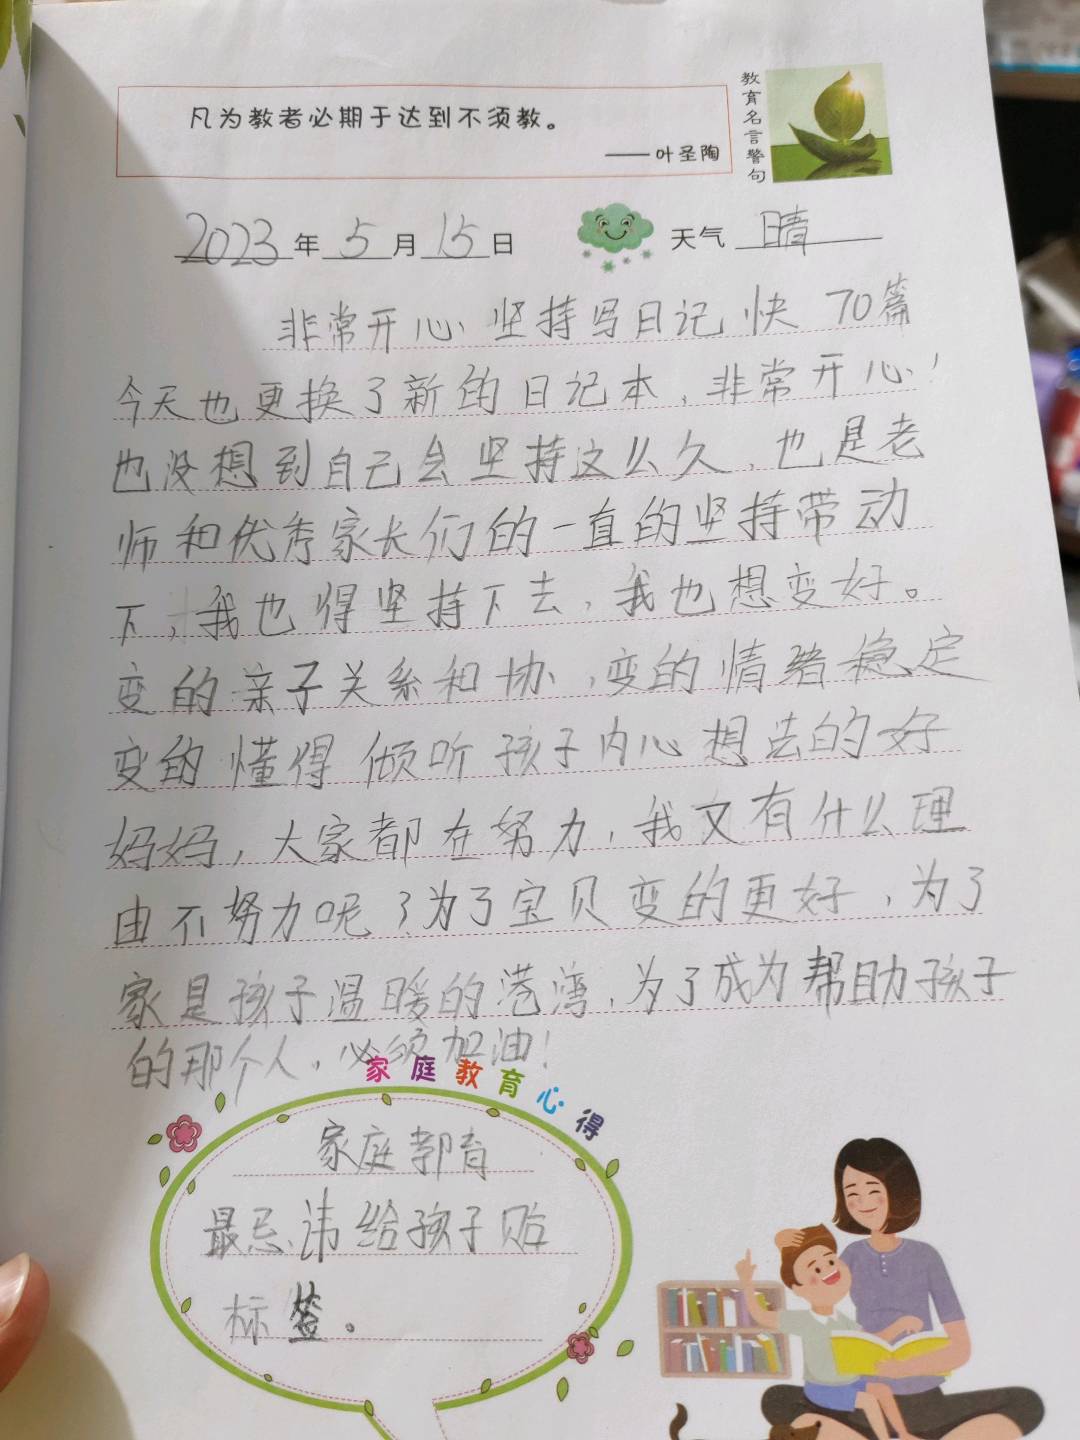 凡为教者必期于达到不须教。
——叶圣陶
教育名言警句
2023年5月15日 天气 晴
非常开心 坚持写日记快70篇
今天也更换了新的日记本，非常开心！
也没想到自己会坚持这么久，也是老
师和优秀家长们的一直的坚持带动
下，我也得坚持下去，我也想变好。
变的亲子关系和协，变的情绪稳定
变的懂得倾听孩子内心想法的好
妈妈，大家都在努力，我又有什么理
由不努力呢？为了宝贝变的更好，为了
家是孩子温暖的港湾，为了成为帮助孩子
的那个人，必须加油！
家庭教育心得
家庭教育
最忌讳给孩子贴
标签。